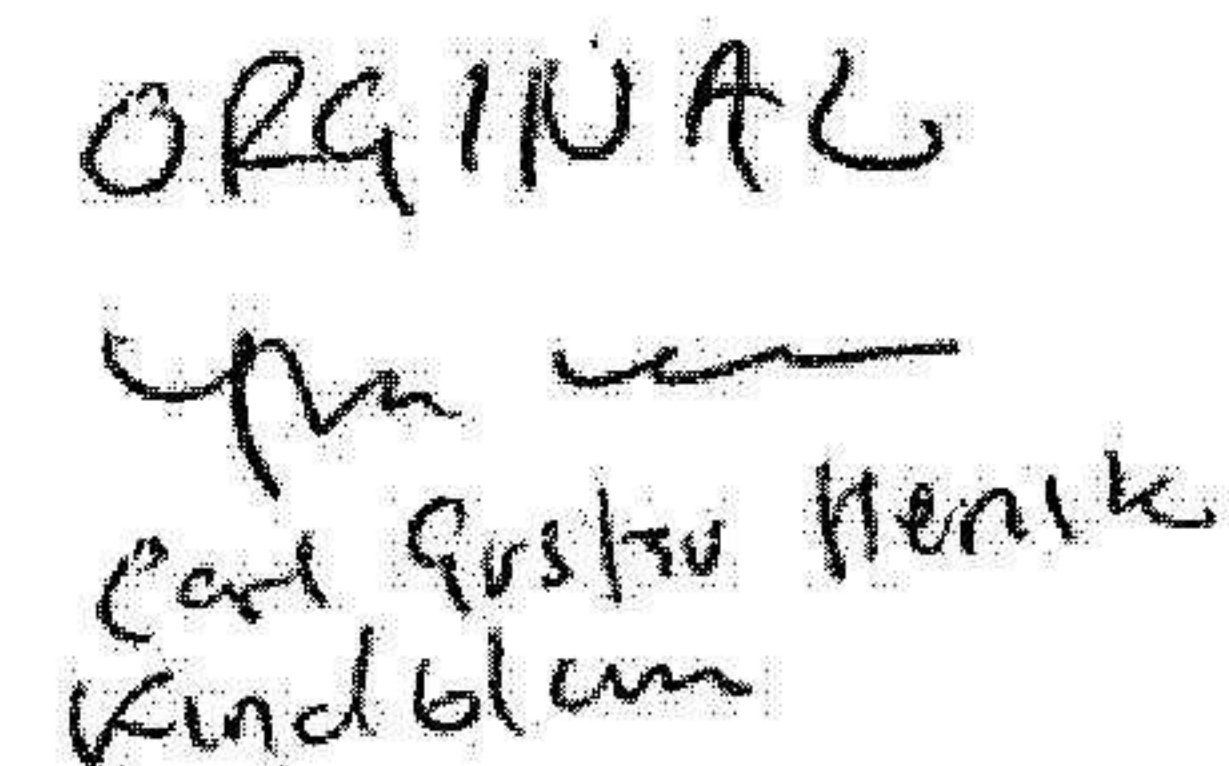 ORGINAL
Carl Gustav Henrik
Kindblom